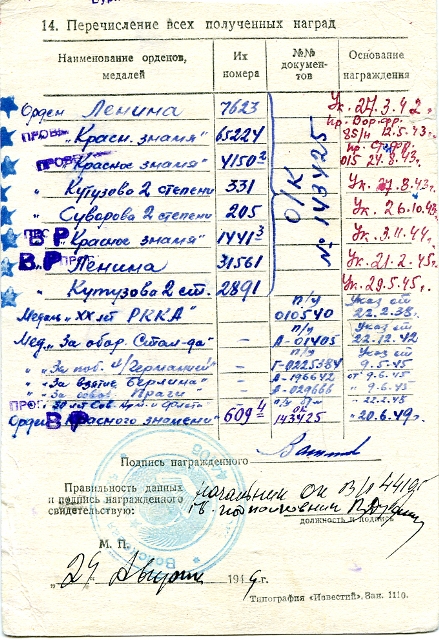 14. Перечисление всех полученных наград
Наименование орденов, медалей | Их номера | №№ документов | Основание награждения
Орден Ленина 7623 Ук. 27.3.42г.
"Красн. знамя" 65224 пр. Вор. фр. 85/н 12.5.43г.
"Красное знамя" 4150² пр. 015 24.8.43г.
" Кутузова 2 степени 331 Ук. 27.8.43г.
" Суворова 2 степени 205 Ук. 26.10.43г.
" Красное знамя" 1441³ Ук. 3.11.44г.
" Ленина 31561 Ук. 21.2.45г.
" Кутузова 2 ст. 2891 Ук. 29.5.45г.
О/К № 143425
Медаль "XX лет РККА" п/у 010540 Указ от 22.2.38.
Мед. "За обор. Стал-да" – п/у А-01405 Указ от 22.12.42
" "За поб. н/Германией" – п/у Г-0225384 Указ от 9.5.45
" "За взятие Берлина" – А-196642 от 9.6.45
" "За освоб. Праги" – А-029666 " 9.6.45
" "30 лет Сов. Арм. и Флота" " 22.2.48
Орден Красного знамени" 609⁴ ОК 143425 "20.6.49г.
ВР
Подпись награжденного
Правильность данных
и подпись награжденного
свидетельствую:
начальник ОК В/Ч 44195
гв. подполковник
должность и подпись
М. П.
"29" Августа 1949г.
Типография «Известий». Зак. 1110.